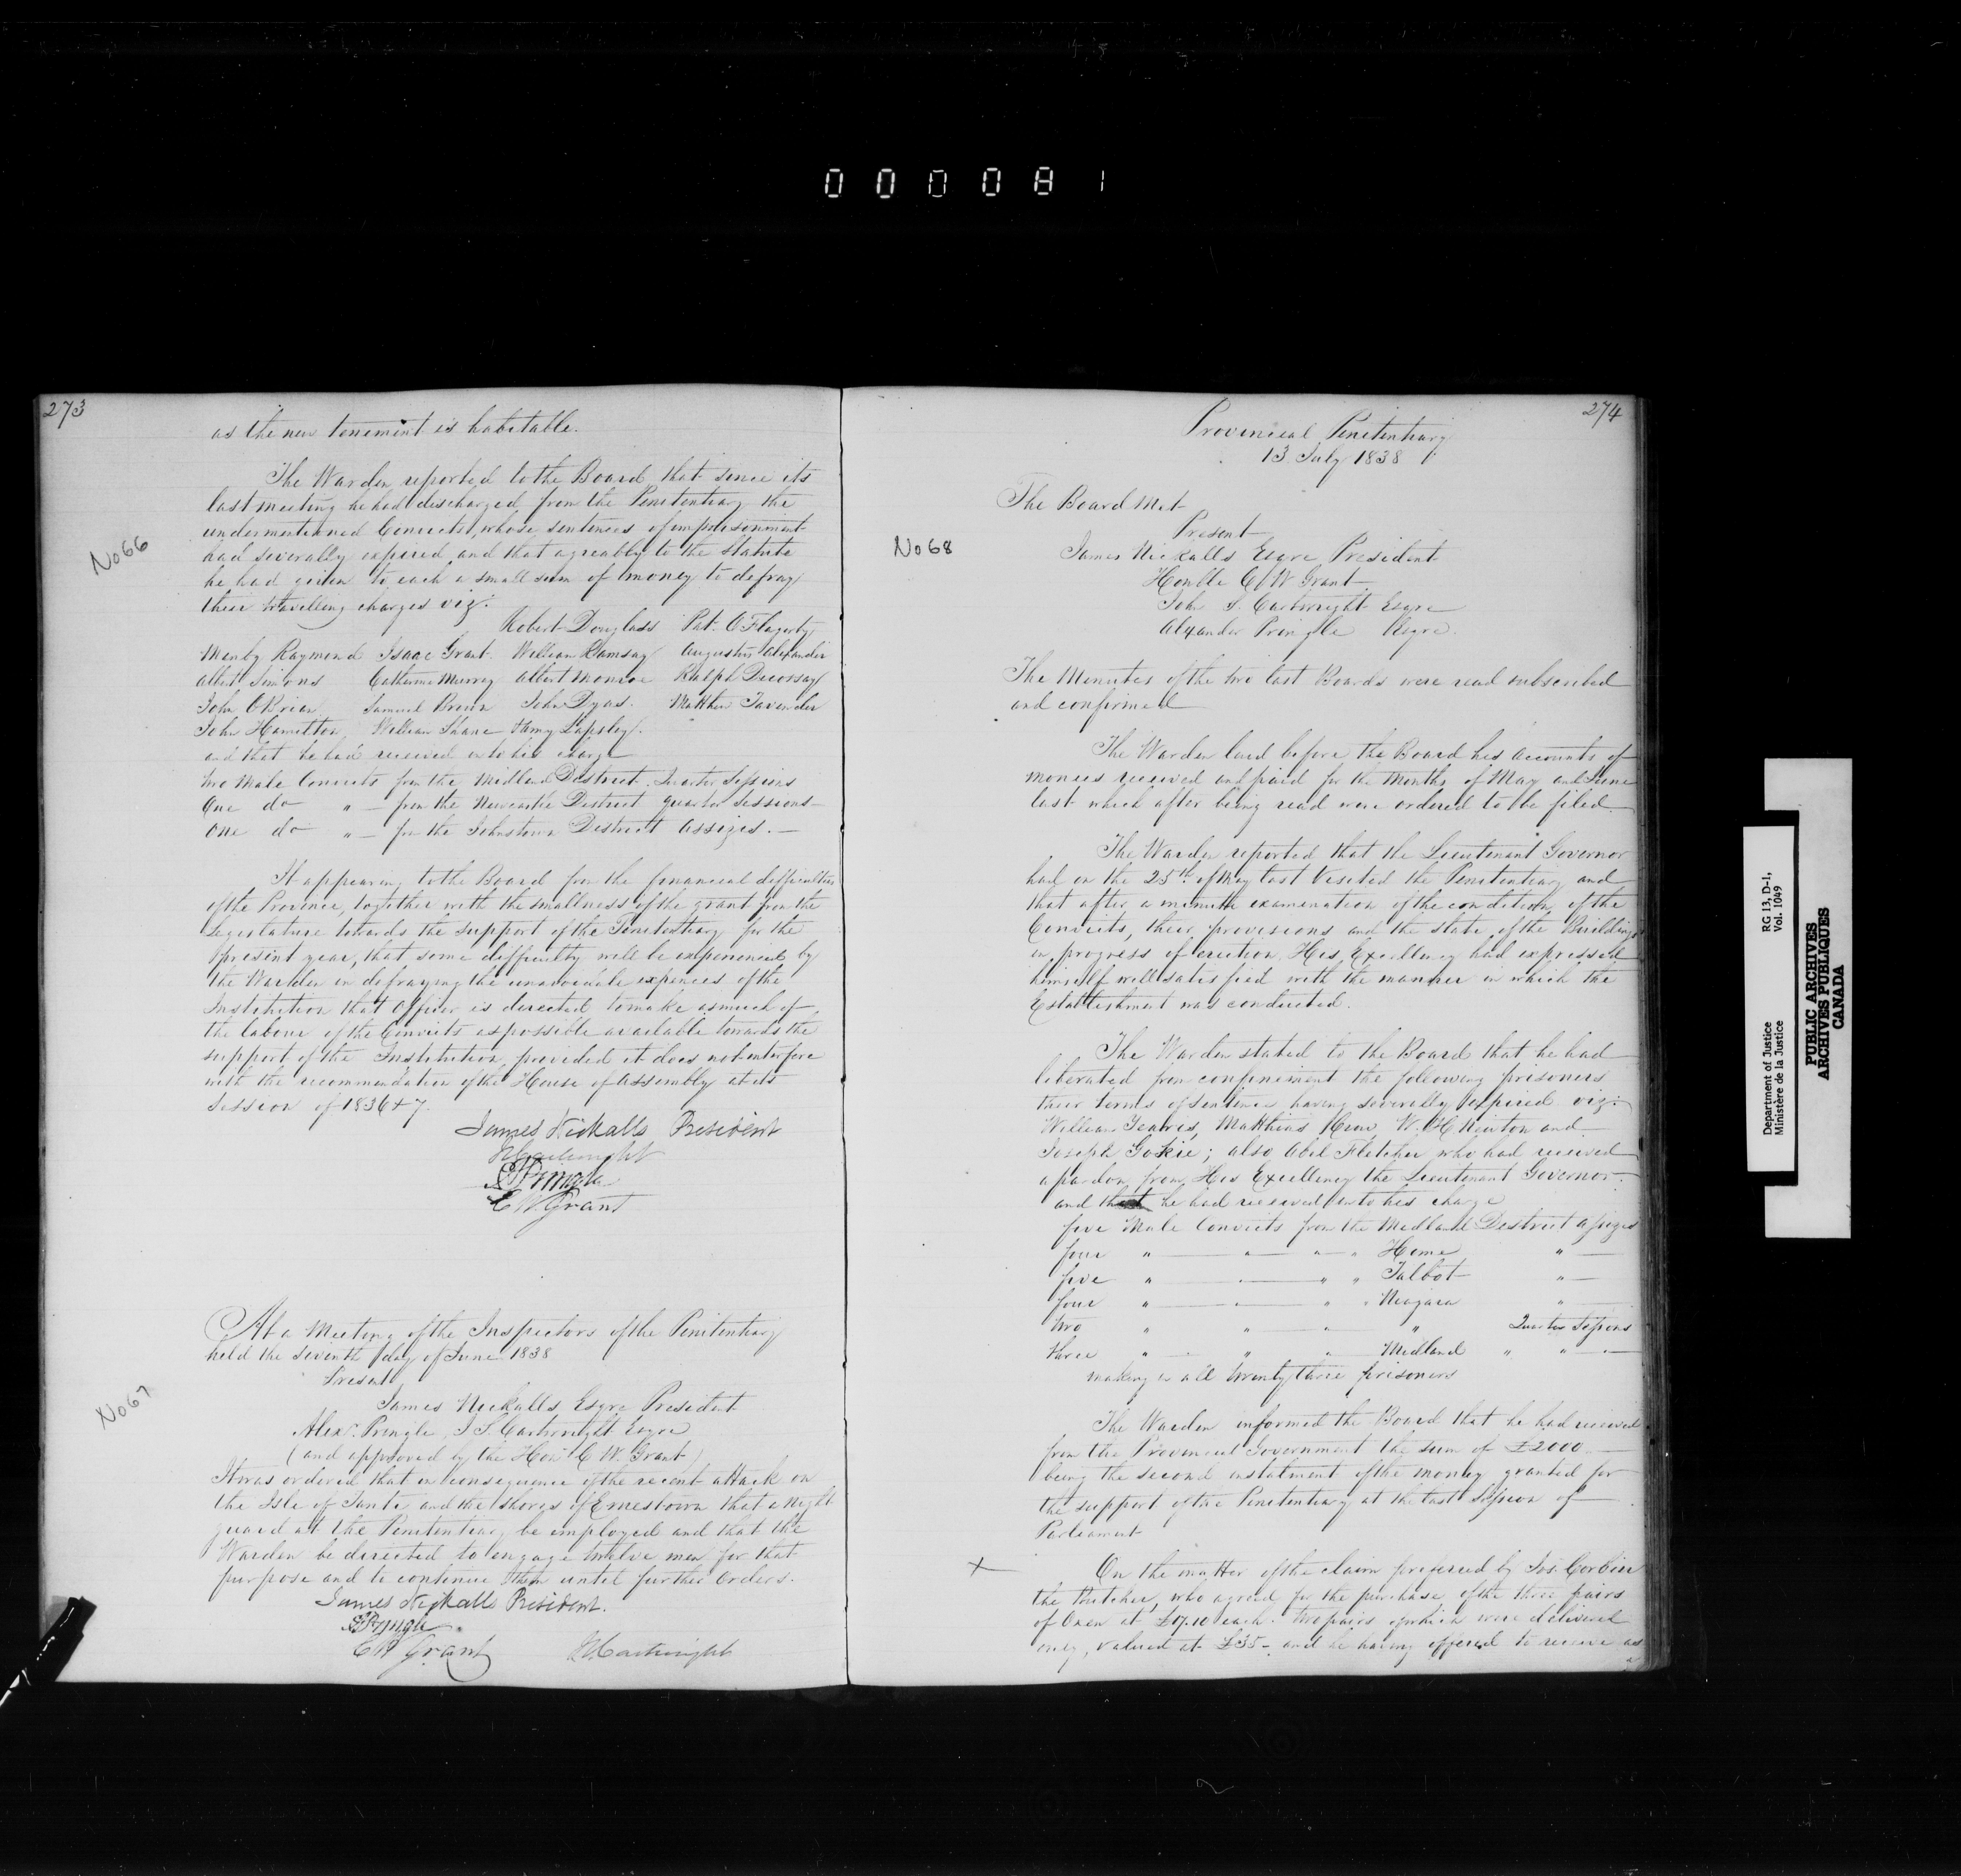 000081
273
as the new tenement is habitable.
The Warden reported to the Board that since its
last meeting he had discharged from the Penitentiary the
undermentioned Convicts, whose sentences of imprisonment
had severally expired and that agreably to the Statute
he had given to each a small sum of money to defray
their travelling charges viz:
No 66
Robert Douglass Pat. O Flagerty
Manby Raymond Isaac Grant William Ramsay Augustus Alexander
Albert Simons Catherine Murray Albert Monroe Ralph
John OBrian Samuel Brown John Dyas. Matthew Tavender
John Hamilton William Shane Henry Lapsley.
and that he had received into his charge
two Male Convicts from the Midland District Quarter Sessions
One do " — from the Newcastle District quarter Sessions —
One do " — from the Johnstown District Assizes. —
It appearing to the Board from the financial difficulties
of the Province, together with the smallness of the grant from the
Legislature towards the support of the Penitentiary for the
present year, that some difficulty will be experienced by
the Warden in defraying the unavoidable expences of the
Institution that Officer is directed to make as much of
the labour of the Convicts as possible available towards the
support of the Institution, provided it does not interfere
with the recommendation of the House of Assembly at its
Session of 1836 & 7.
James Nickalls President
JS Cartwright
A Pringle
C W Grant
At a Meeting of the Inspectors of the Penitentiary
held the seventh day of June 1838
Present
No 67
James Nickalls Esqre President
Alexr. Pringle, J S. Cartwright Esqre
(and approved by the Hon C W. Grant)
It was ordered that in consequence of the recent attack on
the Isle of Tanti and the shores of Ernestown that a night
guard at the Penitentiary be employed and that the
Warden be directed to engage twelve men for that
purpose and to continue them until further Orders.
James Nickalls President.
A Pringle
C W Grant JS Cartwright
274
Provincial Penitentiary
13 July 1838
The Board Met
Present
No 68
James Nickalls Esqre President
Honble C W Grant
John S. Cartwright Esqre
Alexander Pringle Esqre.
The Minutes of the two last Boards were read subscribed
and confirmed
The Warden laid before the Board his accounts of
monies received and paid for the months of May and June
last which after being read were ordered to be filed
The Warden reported that the Lieutenant Governor
had on the 25th of May last visited the Penitentiary and
that after a minute examination of the condition of the
Convicts, their provisions and the state of the Buildings
in progress of erection, His Excellency had expressed
himself well satisfied with the manner in which the
Establishment was conducted.
The Warden stated to the Board that he had
liberated from confinement the following prisoners
their terms of sentence having severally expired viz:
William Matthias W. H Newton and
Joseph Gokie; also Abel Fletcher who had received
a pardon from His Excellency the Lieutenant Governor.
and that he had received into his charge
five Male Convicts from the Midland District Assizes
four " — " — " " Home " —
five " — " — " " Talbot " —
four " — " — " " Niagara " —
two " " " " Quarter Sessions
three " — " " — Midland " " —
making in all twenty three prisoners
The Warden informed the Board that he had received
from the Provincial Government the sum of £2000 —
being the second instalment of the money granted for
the support of the Penitentiary at the last Session of
Parliament
x On the matter of the claim preferred by Jos. Corbier
the Butcher, who agreed for the purchase of the three pairs
of Oxen at £17.10 each. two pairs of which were delivered
only, valued at £35 – and he having offered to receive as
Department of Justice
Ministère de la Justice
RG 13, D-1,
Vol. 1049
PUBLIC ARCHIVES
ARCHIVES PUBLIQUES
CANADA